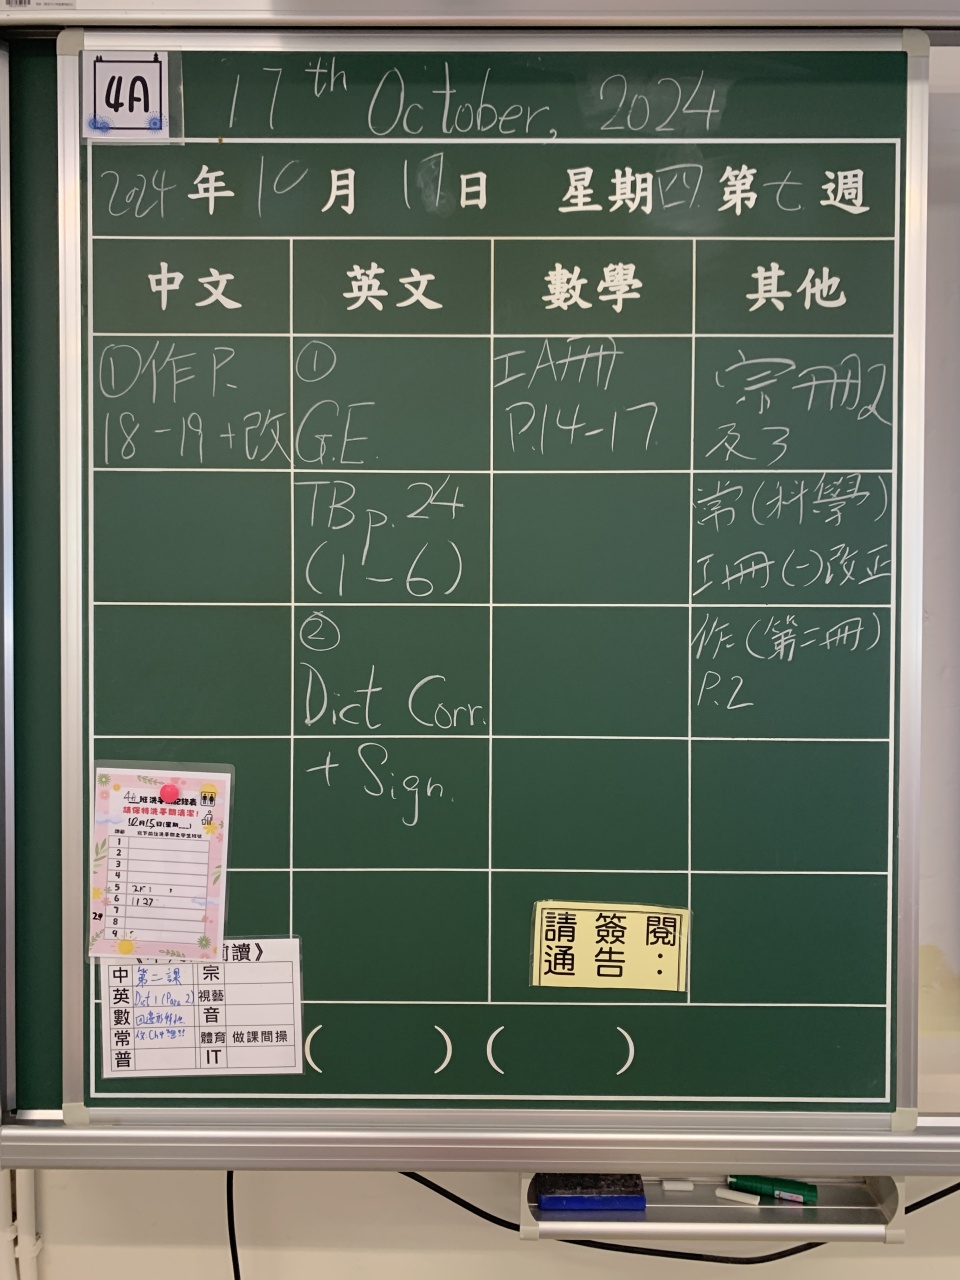 4A
17th October, 2024
2024年10月17日 星期四 第七週
中文 英文 數學 其他
①作P.
18-19+改
①
G.E.
TB p. 24
(1-6)
②
Dict Corr.
+ Sign.
工A冊
P.14-17
宗冊2
及3
常(科學)
工冊(一)改正
作(第二冊)
P.2
請保持洗手間清潔!
10月15日(星期
1
2
3
4
5
6 1127
7
8
9
29
讀》
中 第二課 宗
英 Dict 1 (Para 2) 視藝
數 音
常 體育 做課間操
普 IT
請簽閱
通告:
( ) ( )